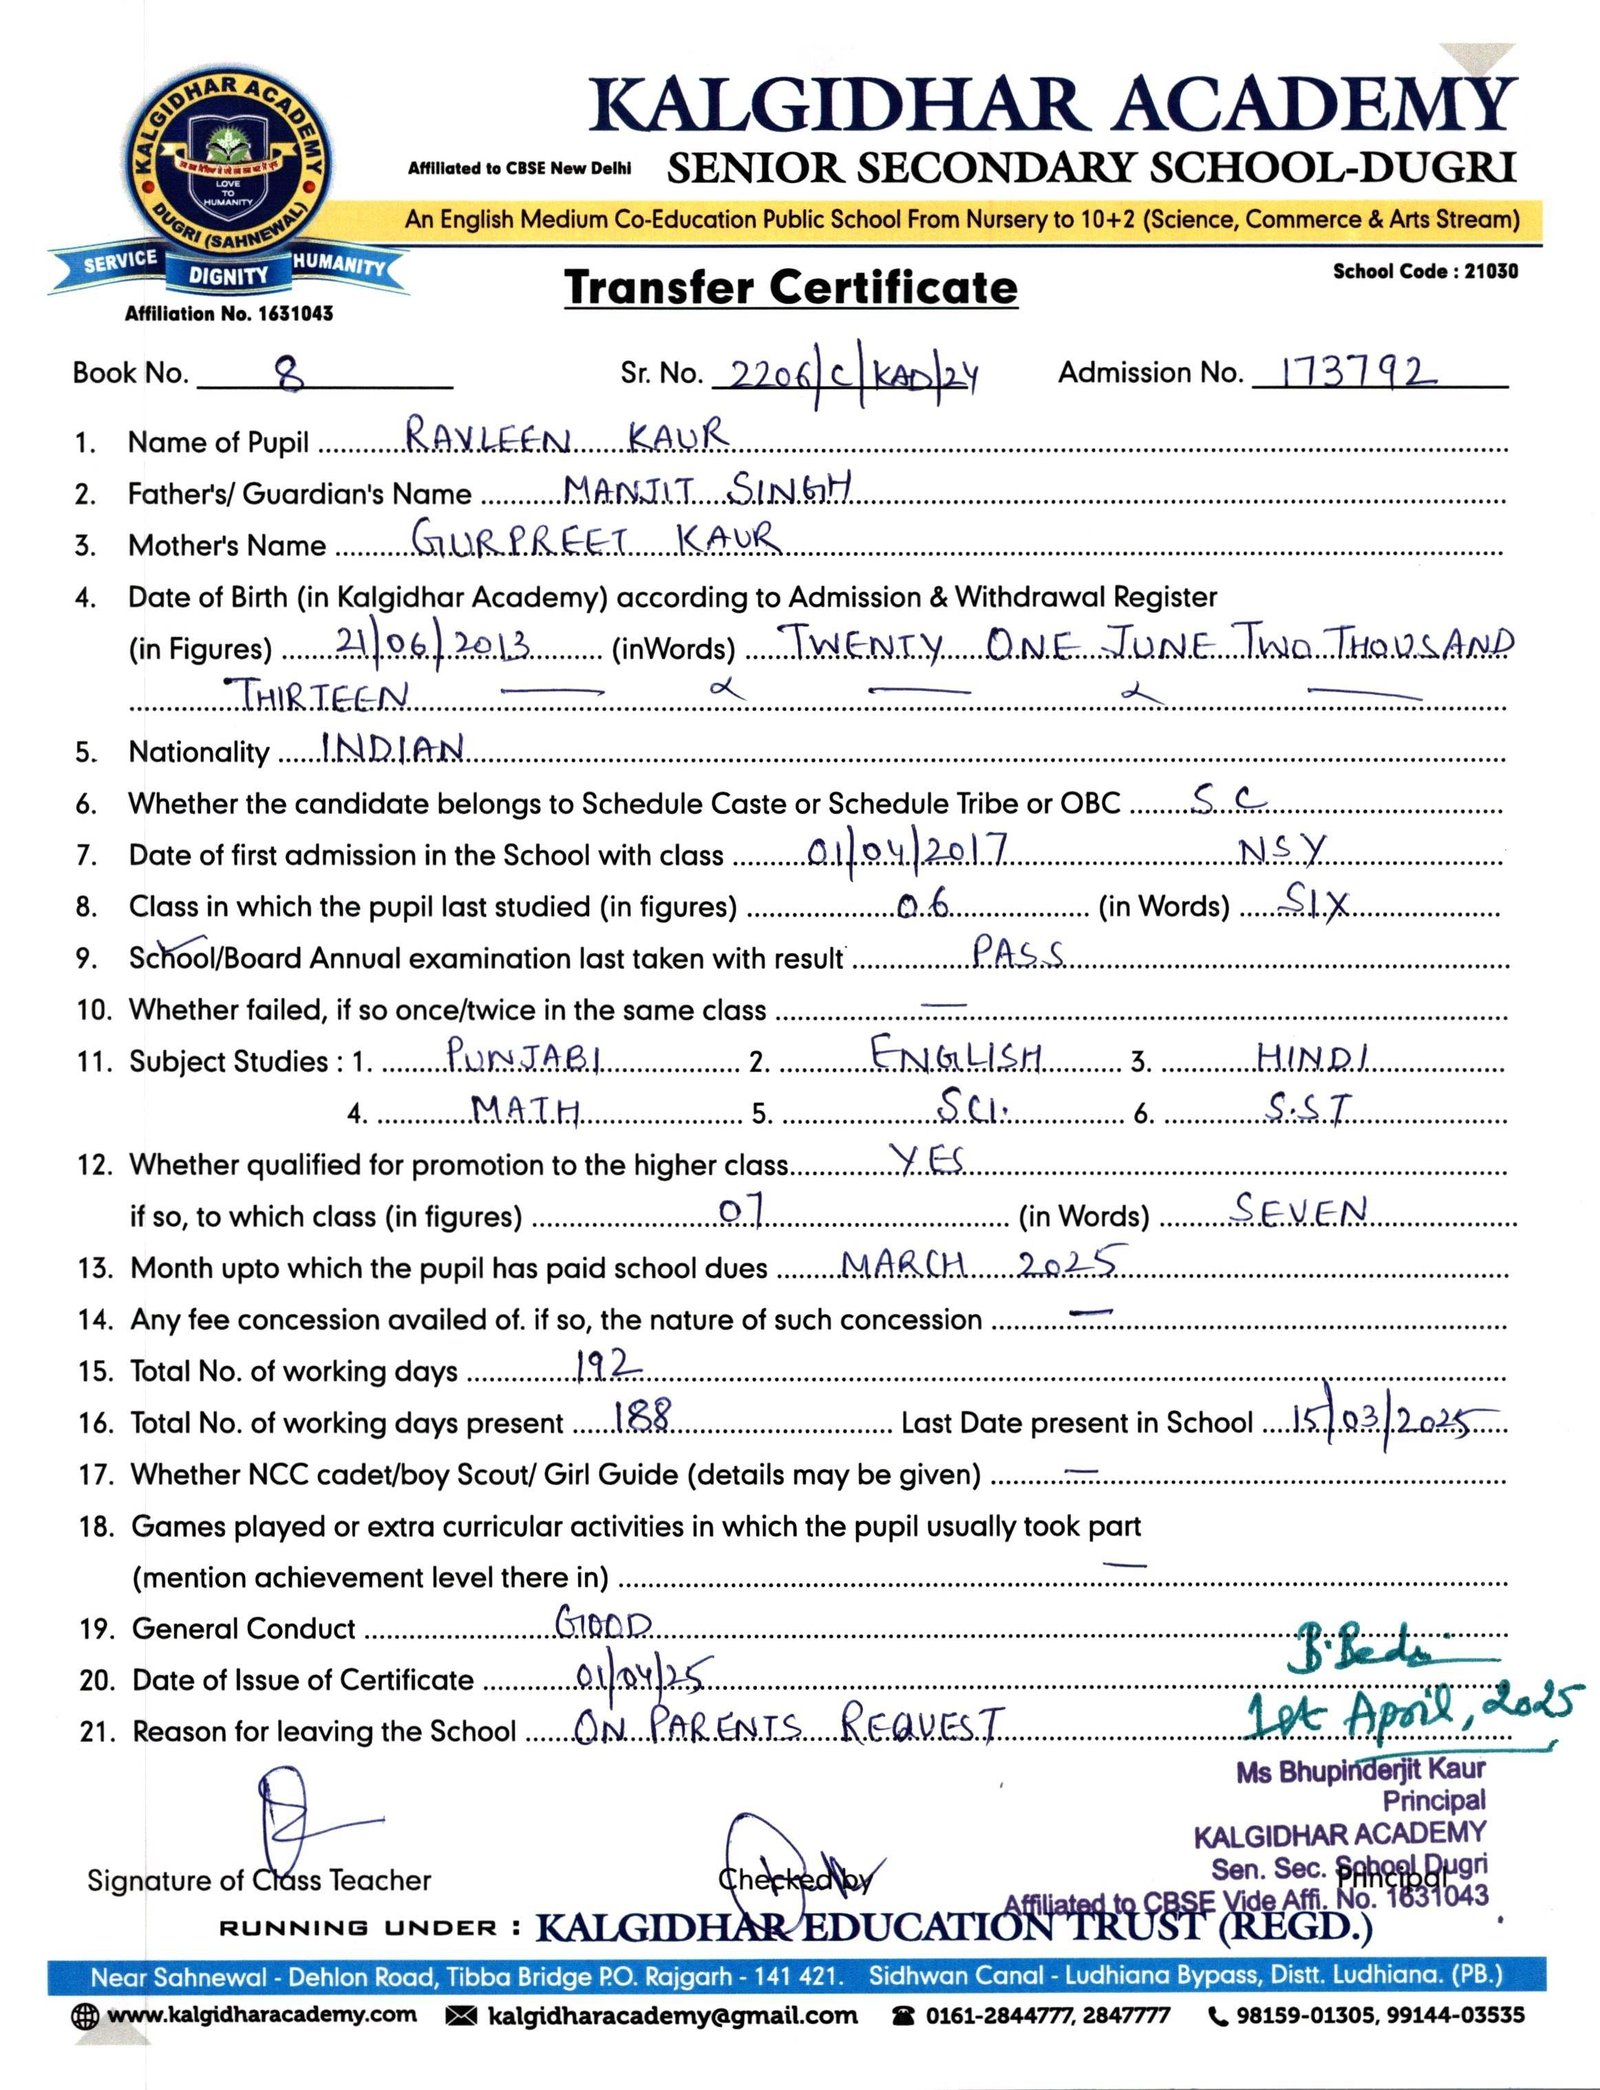 KALGIDHAR ACADEMY
DUGRI (SAHNEWAL)
LOVE
TO
HUMANITY
SERVICE DIGNITY HUMANITY
Affiliation No. 1631043
KALGIDHAR ACADEMY
Affiliated to CBSE New Delhi SENIOR SECONDARY SCHOOL-DUGRI
An English Medium Co-Education Public School From Nursery to 10+2 (Science, Commerce & Arts Stream)
School Code : 21030
Transfer Certificate
Book No. 8 Sr. No. 2206/C/KAD/24 Admission No. 173792
1. Name of Pupil RAVLEEN KAUR
2. Father's/ Guardian's Name MANJIT SINGH
3. Mother's Name GURPREET KAUR
4. Date of Birth (in Kalgidhar Academy) according to Admission & Withdrawal Register
(in Figures) 21/06/2013 (inWords) TWENTY ONE JUNE TWO THOUSAND
THIRTEEN
5. Nationality INDIAN
6. Whether the candidate belongs to Schedule Caste or Schedule Tribe or OBC S C
7. Date of first admission in the School with class 01/04/2017 NSY
8. Class in which the pupil last studied (in figures) 06 (in Words) SIX
9. School/Board Annual examination last taken with result PASS
10. Whether failed, if so once/twice in the same class —
11. Subject Studies : 1. PUNJABI 2. ENGLISH 3. HINDI
4. MATH 5. SCI. 6. S.ST
12. Whether qualified for promotion to the higher class YES
if so, to which class (in figures) 07 (in Words) SEVEN
13. Month upto which the pupil has paid school dues MARCH 2025
14. Any fee concession availed of. if so, the nature of such concession —
15. Total No. of working days 192
16. Total No. of working days present 188 Last Date present in School 15/03/2025
17. Whether NCC cadet/boy Scout/ Girl Guide (details may be given) —
18. Games played or extra curricular activities in which the pupil usually took part
(mention achievement level there in) —
19. General Conduct GOOD
B. Bedi
20. Date of Issue of Certificate 01/04/25
1st April, 2025
21. Reason for leaving the School ON PARENTS REQUEST
Ms Bhupinderjit Kaur
Principal
KALGIDHAR ACADEMY
Sen. Sec. School Dugri
Affiliated to CBSE Vide Affi. No. 1631043
Signature of Class Teacher Checked by Principal
RUNNING UNDER : KALGIDHAR EDUCATION TRUST (REGD.)
Near Sahnewal - Dehlon Road, Tibba Bridge P.O. Rajgarh - 141 421. Sidhwan Canal - Ludhiana Bypass, Distt. Ludhiana. (PB.)
www.kalgidharacademy.com kalgidharacademy@gmail.com 0161-2844777, 2847777 98159-01305, 99144-03535